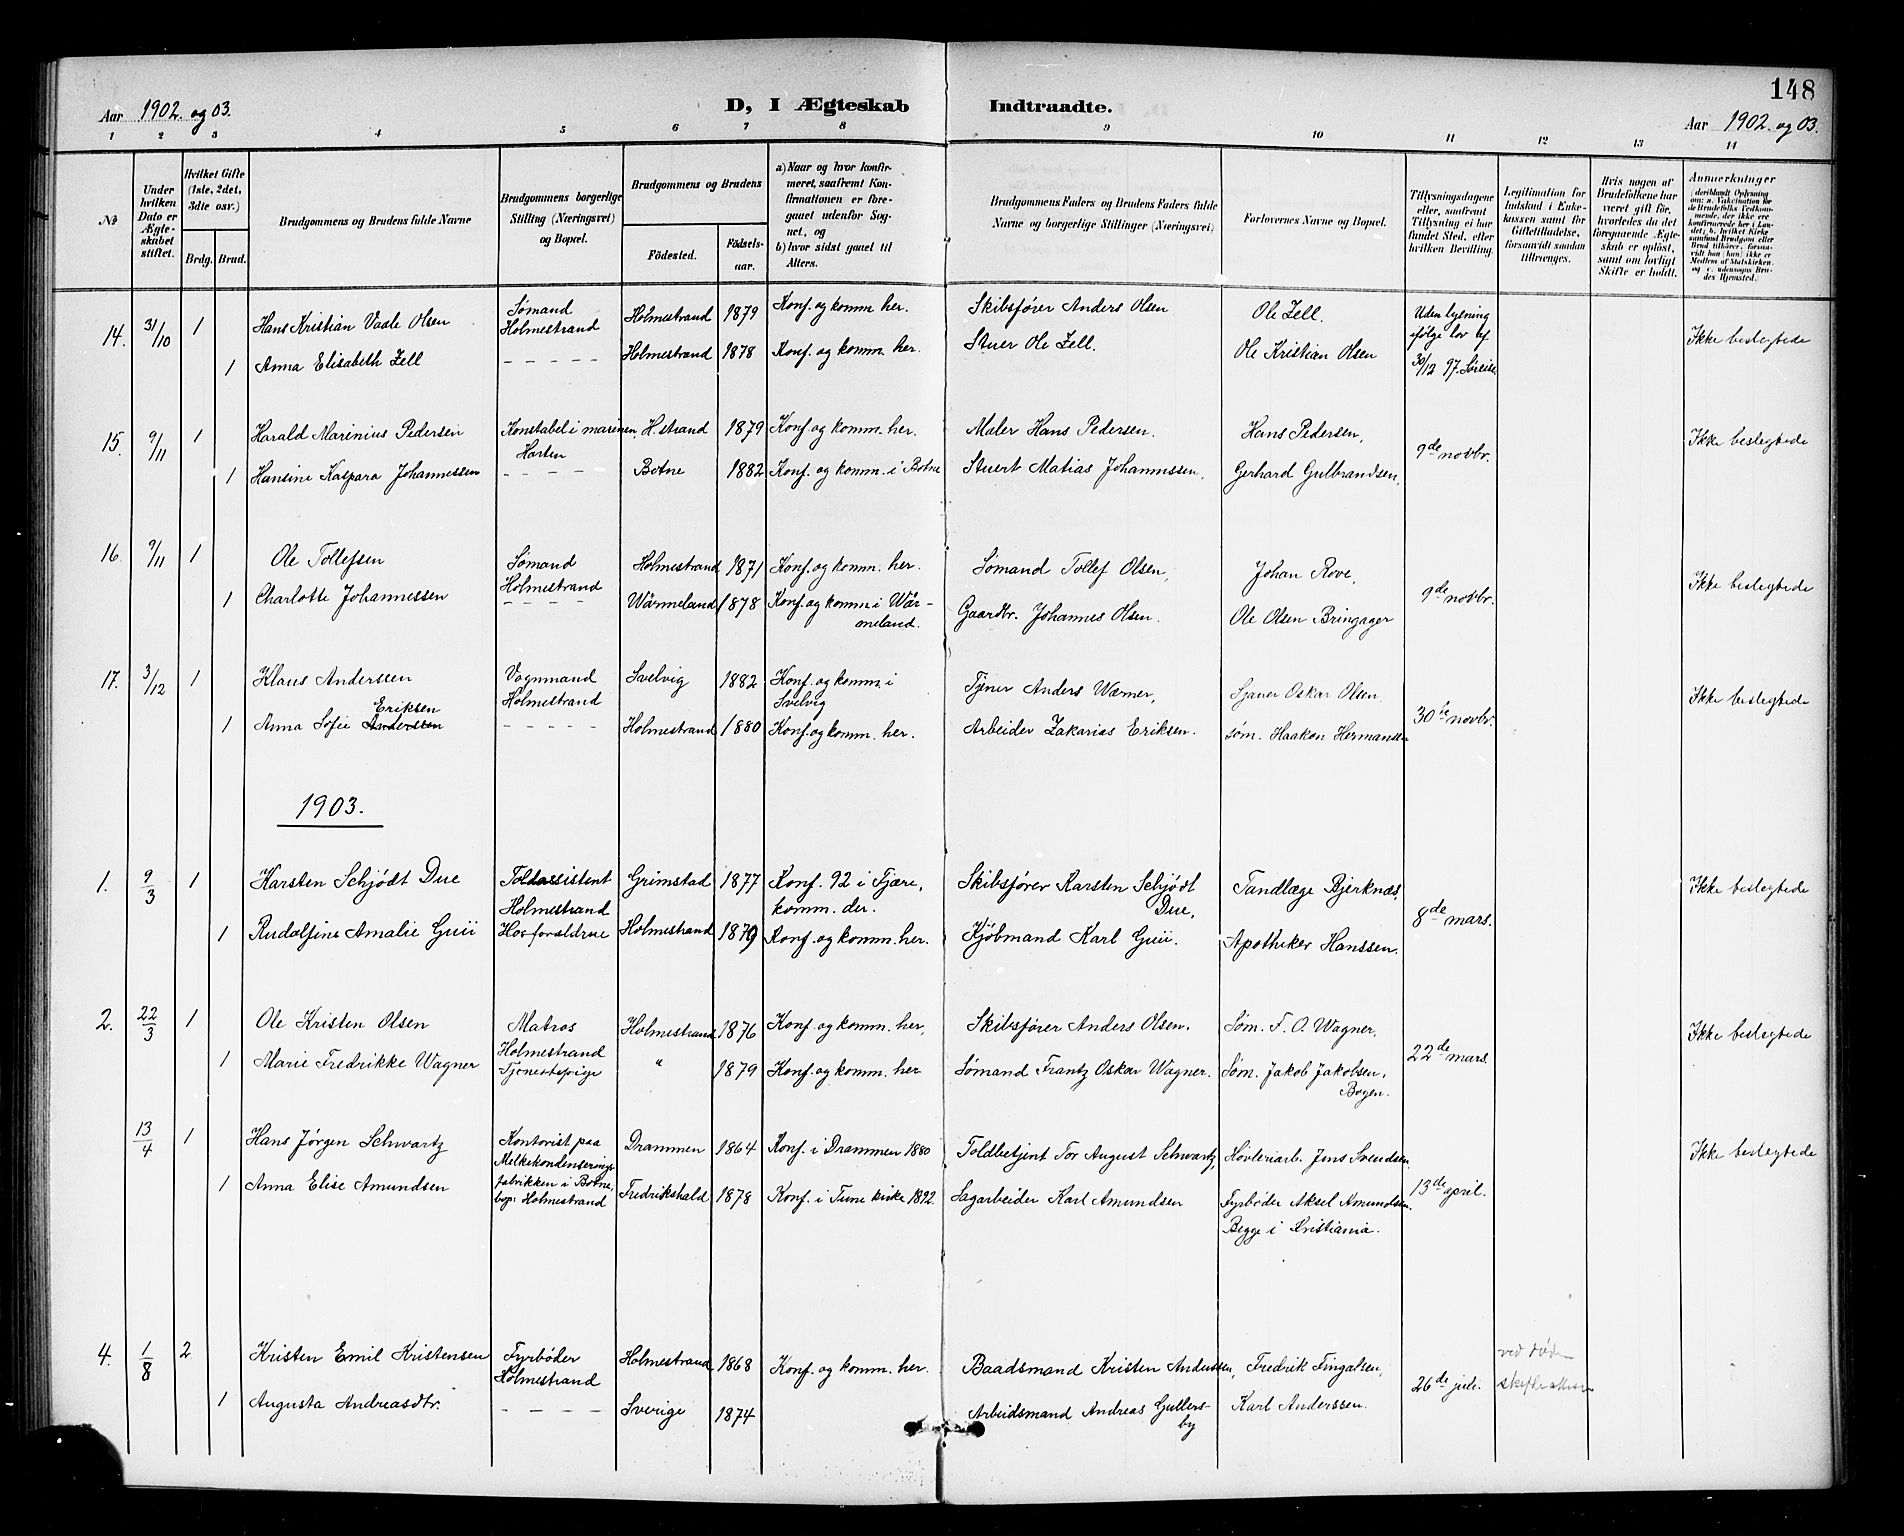 148
Aar 1902. og 03.
D, I Ægteskab Indtraadte.
Aar 1902. og 03.
1 2 3 4 5 6 7 8 9 10 11 12 13 14
No
Under hvilken Dato er Ægteskabet stiftet.
Hvilket Gifte (1ste, 2det, 3die osv.)
Brdg. Brud.
Brudgommens og Brudens fulde Navne
Brudgommens borgerlige Stilling (Næringsvei) og Bopæl.
Brudgommens og Brudens
Födested.
Födselsaar.
a) Naar og hvor konfirmeret, saafremt Konfirmationen er foregaaet udenfor Sognet, og
b) hvor sidst gaaet til Alters.
Brudgommens Faders og Brudens Faders fulde Navne og borgerlige Stillinger (Næringsvei)
Forlovernes Navne og Bopæl.
Tillysningsdagene eller, saafremt Tillysning ei har fundet Sted, efter hvilken Bevilling.
Legitimation for Indskud i Enkekassen samt for Giftetilladelse, forsaavidt saadan tiltrænges.
Hvis nogen af Brudefolkene har været gift för, hvorledes da det foregaaende Ægteskab er oplöst, samt om lovligt Skifte er holdt.
Anmærkninger
(deriblandt Oplysning om: a. Vakcination for de Brudefolks Vedkommende, der ikke ere konfirmerede her i Landet; b. hvilket Kirkesamfund Brudgom eller Brud tilhörer, forsaavidt han (hun) ikke er Medlem af Statskirken, og c. udensogns Brudes Hjemsted.
14. 31/10 1 Hans Kristian Vaale Olsen Sømand Holmestrand Holmestrand 1879 Konf. og komm. her. Skibsfører Anders Olsen Ole Zell. Uden lysning ifølge lov af 30/12 97. Søreise. Ikke beslegtede
1 Anna Elisabeth Zell – – – – – Holmestrand 1878 Konf. og komm. her. Stuer Ole Zell. Ole Kristian Olsen
15. 9/11 1 Harald Marinius Pedersen Konstabel i marinen, Horten H.strand 1879 Konf. og komm. her. Maler Hans Pedersen. Hans Pedersen, 9de novbr. Ikke beslegtede
1 Hansine Kaspara Johannessen – – – – – Botne 1882 Konf. og komm. i Botne Stuert Matias Johannessen, Gerhard Gulbrandsen,
16. 9/11 1 Ole Tollefsen Sømand Holmestrand Holmestrand 1871 Konf. og komm. her. Sømand Tollef Olsen, Johan Rove, 9de novbr. Ikke beslegtede
1 Charlotte Johannessen – – – – – Wärmeland 1878 Konf. og komm. i Wärmeland. Gaardbr. Johannes Olsen. Ole Olsen Bringager
17. 3/12 1 Klaus Anderssen Vognmand Holmestrand Svelvig 1882 Konf. og komm. i Svelvig Tjener Anders Wærner, Sjauer Oskar Olsen 30te novbr. Ikke beslegtede
1 Anna Sofie Anderssen Eriksen – – – – – Holmestrand 1880 Konf. og komm. her. Arbeider Zakarias Eriksen. søm. Haakon Hermansen
1903.
1. 9/3 1 Karsten Schjødt Due Toldassistent Holmestrand Grimstad 1877 Konf. 92 i Fjære, komm. der. Skibsfører Karsten Schjødt Due, Tandlæge Bjerknæs, 8de mars. Ikke beslegtede
1 Rudolfine Amalie Guii Hos forældrene Holmestrand 1879 Konf. og komm. her. Kjøbmand Karl Guii. Apotheker Hanssen.
2. 22/3 1 Ole Kristen Olsen Matros Holmestrand Holmestrand 1876 Konf. og komm. her, Skibsfører Anders Olsen. Søm. F. O. Wagner, 22de mars Ikke beslegtede
1 Marie Fredrikke Wagner Tjenestepige " 1879 Konf. og komm. her Sømand Frantz Oskar Wagner. Søm. Jakob Jakobsen, Bogen.
13/4 1 Hans Jørgen Schwartz Kontorist paa Melkekondenserings fabrikken i Botne, bop: Holmestrand Drammen 1864 Konf. i Drammen 1880 Toldbetjent Tor August Schwartz, Høvleriarb. Jens Svendsen 13de april. Ikke beslegtede
1 Anna Elise Amundsen Fredrikshald 1878 Konf. i Tune kirke 1892. Sagarbeider Karl Amundsen Fyrbøder Aksel Amundsen. Begge i Kristiania.
4. 1/8 2 Kristen Emil Kristensen Fyrbøder Holmestrand Holmestrand 1868 Konf. og komm. her. Baadsmand Kristen Anderssen, Fredrik Fingalsen, 26de juli. ved døden
1 Augusta Andreasdtr. – – – – – Sverige 1874 Arbeidsmand Andreas Gullersby Karl Anderssen.